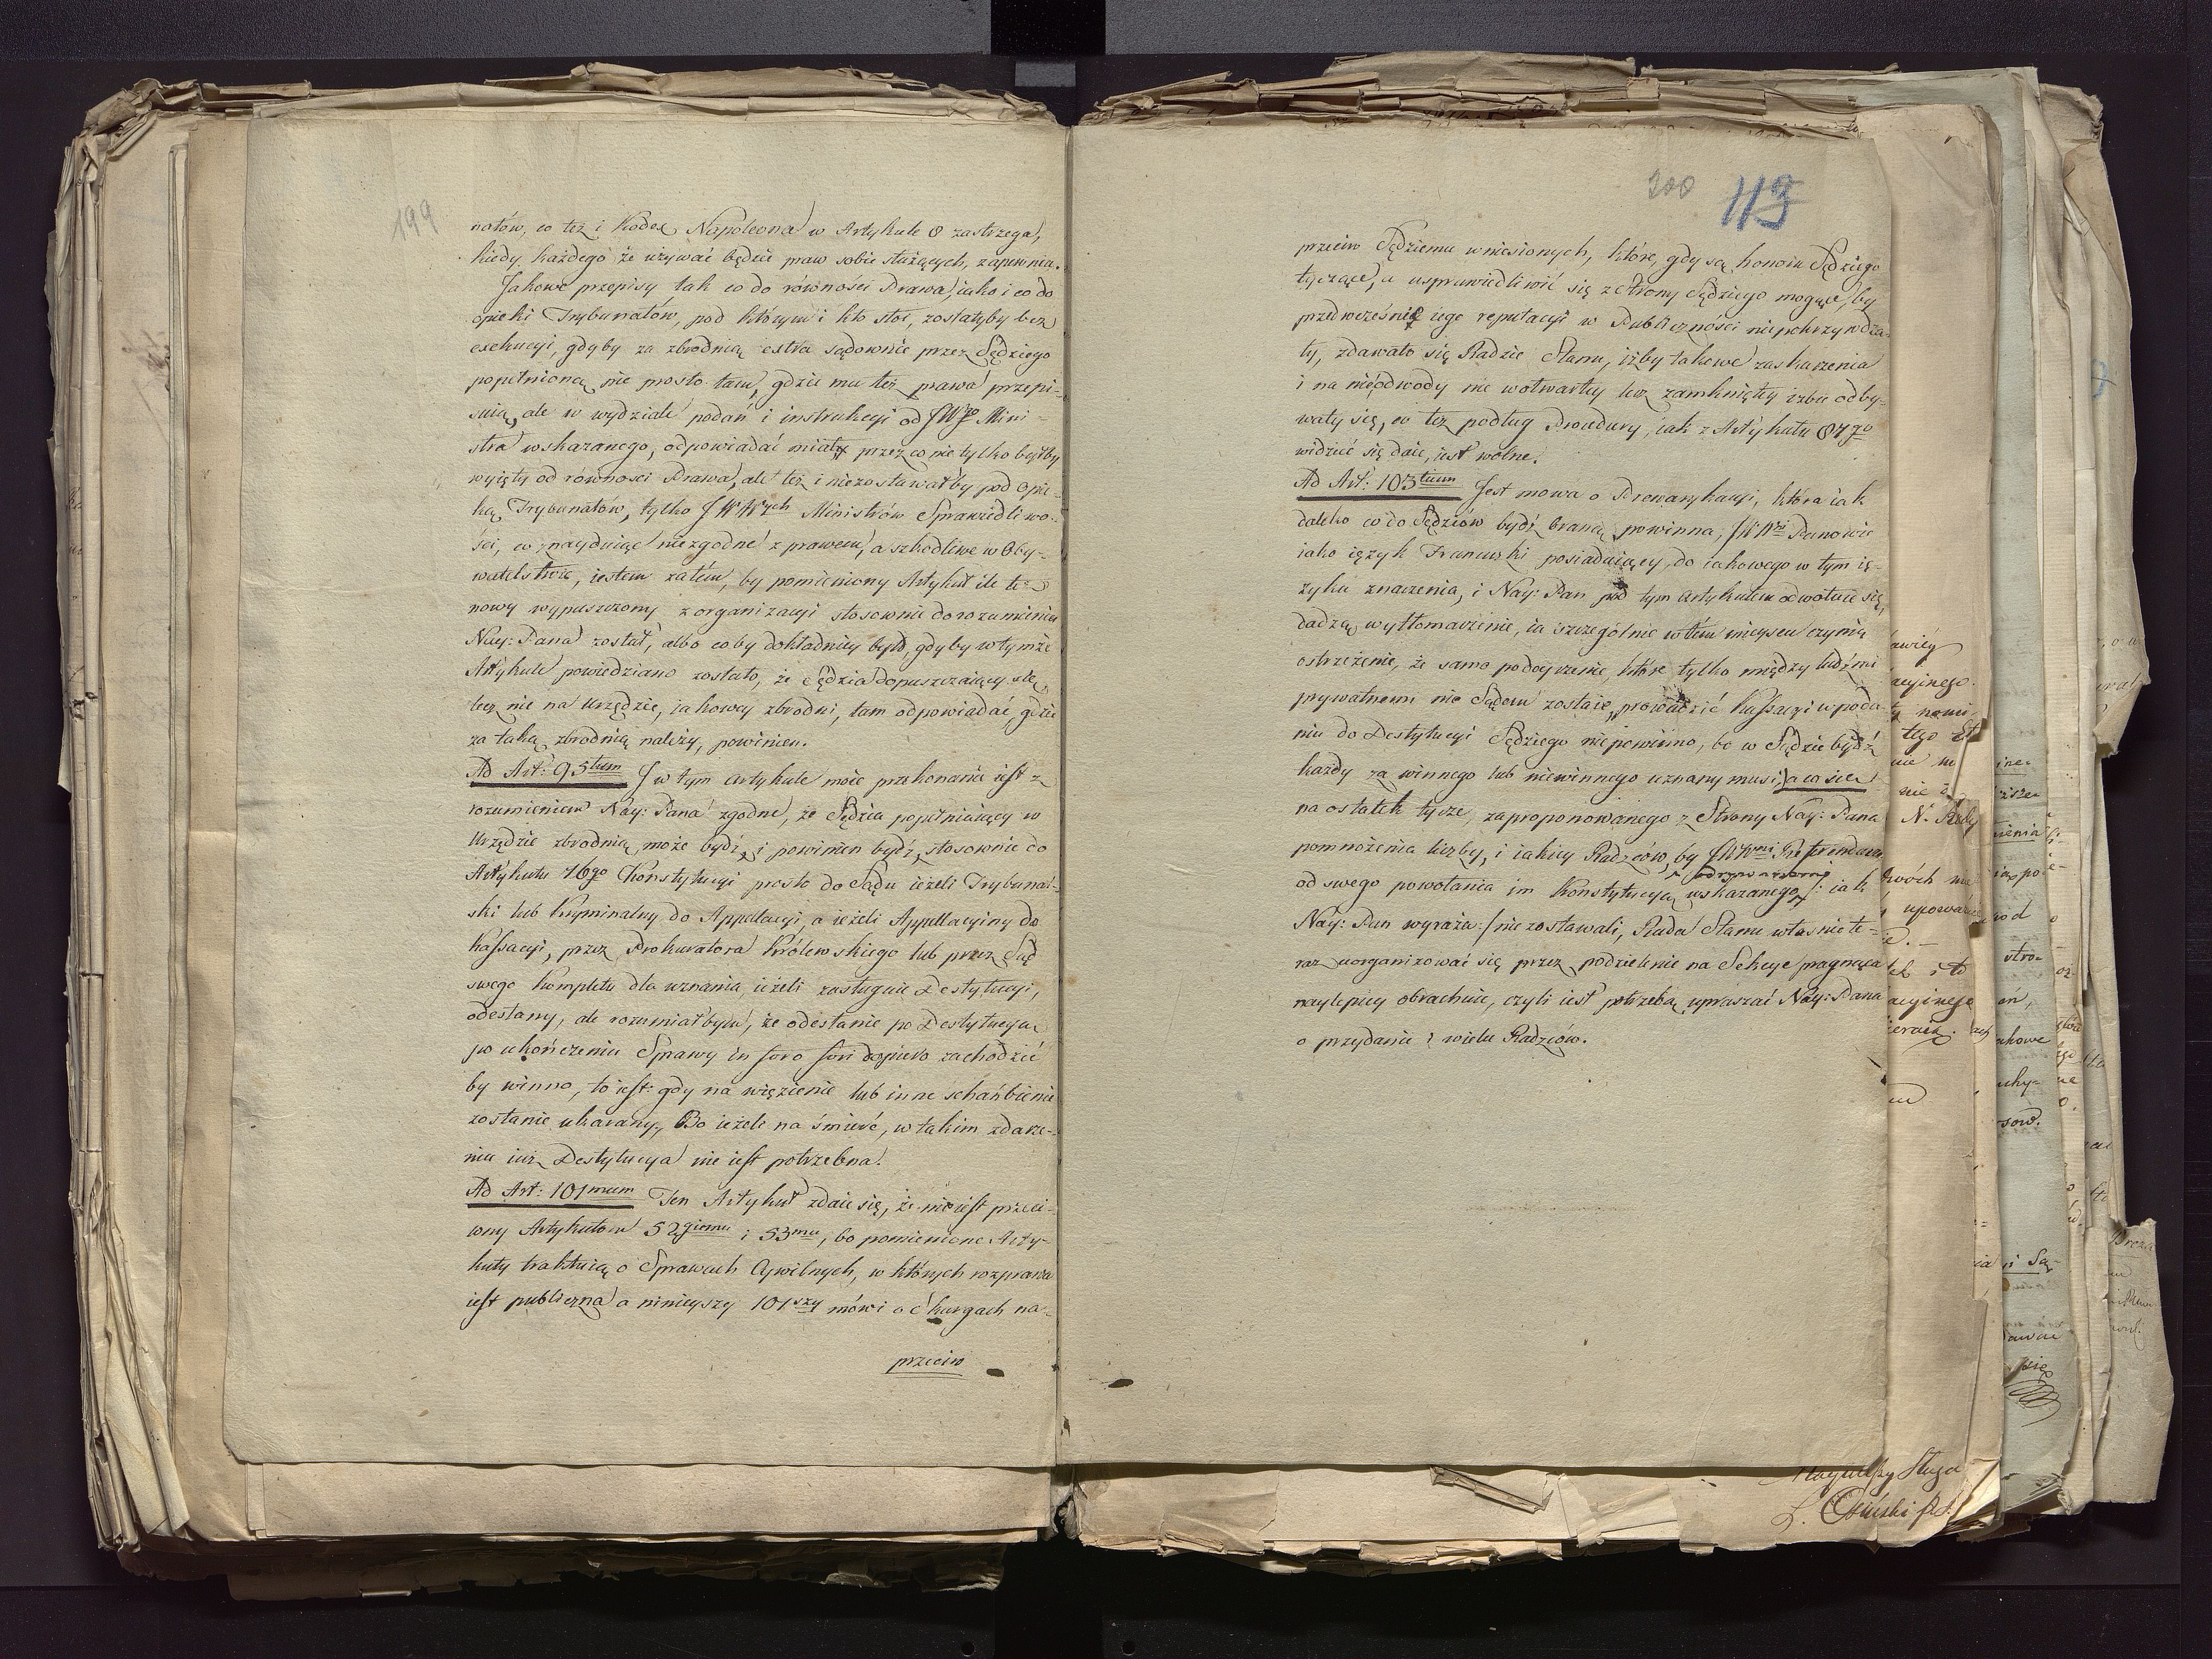 199
natów, co też i Kodex Napoleona w Artykule 8 zastrzega,
kiedy każdego że używać będzie praw sobie służących, zapewnia.
Jakowe przepisy tak co do równosci Prawa, iako i co do
opieki Trybunałów, pod którymi kto stoi, zostałyby bez
exekucyi, gdyby za zbrodnią extra sądownie przez Sędziego
popełnioną nie prosto tam, gdzie mu też prawa przepi-
suią, ale w wydziale podań i instrukcyi od JWgo Mini-
stra wskazanego, odpowiadać miał, przez co nie tylko byłby
wyięty od równosci Prawa, ale też i niezostawałby pod Opie-
ką Trybunałów, tylko JWWych Ministrów Sprawiedliwo-
ści, co znayduiąc niezgodne z prawem, a szkodliwe w Oby-
watelstwie, iestem zatém, by pomieniony Artykuł ile te-
nowy wypuszczony z organizacyi stosownie do rozumienia
Nay: Pana został, albo coby dokładniey było, gdyby w tymże
Artykule powiedziano zostało, że Sędzia dopuszczaiący się,
lecz nie na Urzędzie, iakowey zbrodni, tam odpowiadać, gdzie
za taką zbrodnią należy, powinien.
Ad Art: 95tum I w tym Artykule moie przekonanie iest z
rozumieniem Nay: Pana zgodne, że Sędzia popełniaiący w
Urzędzie zbrodnią, może bydź, i powinien bydź, stosownie do
Artykułu 76go Konstytucyi prosto do Sądu ieżeli Trybunal-
ski lub Kryminalny do Appellacyi, a ieżeli Appellacyiny do
Kassacyi, przez Prokuratora Królewskiego lub przez Sąd
swego Kompletu dla uznania ieżeli zasługuie Destytucyi,
odesłany, ale rozumiałbym, że odesłanie po Destytucyą
po ukończeniu Sprawy in foro fori dopiero zachodzić
by winno, to iest: gdy na więzienie lub inne schańbienie
zostanie ukarany, Bo ieżeli na śmierć, w takim zdarze-
niu iuż Destytucya nie iest potrzebna.
Ad Art: 101mum Ten Artykuł zdaie się, że nieiest przeci-
wny Artykułom 52giemu i 53mu, bo pomienione Arty-
kuły traktuią o Sprawach Cywilnych, w których rozprawa
iest publiczna a ninieyszy 101szy mówi o skargach na-
przeciw
200 113
przeciw Sędziemu wniesionych, które, gdy są honoru Sędziego
tyczące, a usprawiedliwić się z Strony Sędziego mogące, by
przedwcześnie iego reputacyi w Publiczności niepokrzywdza-
ły, zdawało się Radzie Stanu, iżby takowe zaskarżenia
i na nie odwody nie w otwartey lecz zamkniętey izbie odby-
wały się, co też podług Procedury, iak z Artykułu 87go
widzieć się daie, iest wolne.
Ad Art: 103tium Jest mowa o Prewarykacyi, która iak
daleko co do Sędziów bydź braną powinna, JWWni Panowie
iako ięzyk Francuski posiadaiący, do iakowego w tym ię-
zyku znaczenia, i Nay: Pan pod tym Artykułem odwołuie się,
dadzą wytłomaczenie, ia szczególnie w tem mieyscu czynię
ostrzeżenie, że samo podeyrzenie, które tylko między ludźmi
prywatnemi nie Sądem zostaie, prowadzić Kassacyi w poda-
niu do Destytucyi Sędziego niepowinno, bo w Sądzie bydź
każdy za winnego lub niewinnego uznany musi, a co się
na ostatek tycze, zaproponowanego z Strony Nay: Pana
pomnożenia liczby, i iakiey Radzców, by JWWni Referendarze
i odrywanemi
od swego powołania im Konstytucyą wskazanego /: iak
Nay: Pan wyraża :/ nie zostawali, Rada Stanu własnie te-
raz uorganizować się przez podzielenie na Sekcye pragnąca
naylepiey obrachuie, czyli iest potrzeba, upraszać Nay: Pana
o przydanie i wielu Radzców.
acyinego
tego
upoważ
acyinego
stro-
akowe
L. Osiński